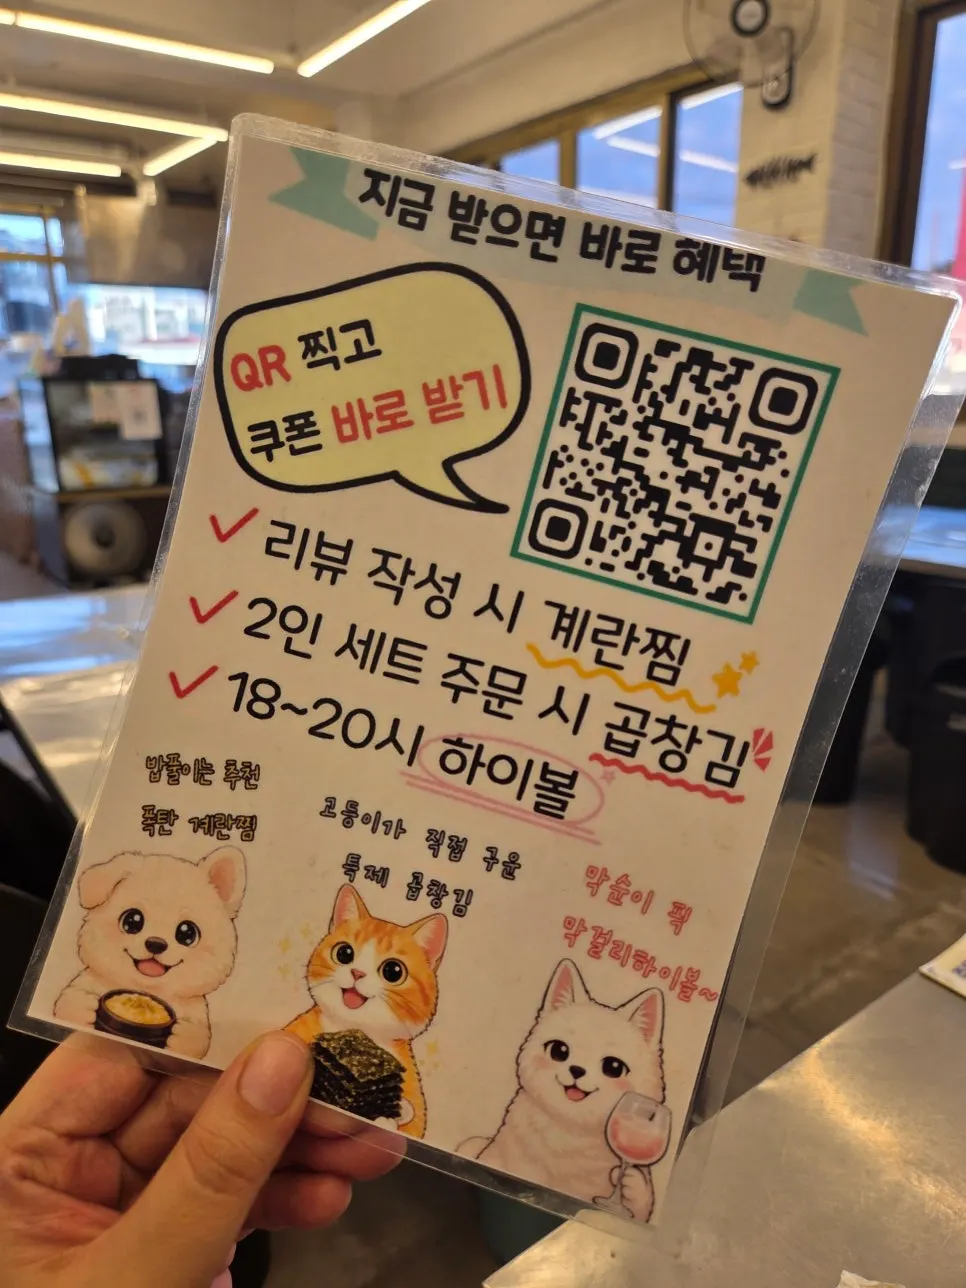 지금 받으면 바로 혜택
QR 찍고
쿠폰 바로 받기
리뷰 작성 시 계란찜
2인 세트 주문 시 곱창김
18~20시 하이볼
밥풀이는 추천
폭탄 계란찜
고등이가 직접 구운
특제 곱창김
막순이 픽
막걸리하이볼~